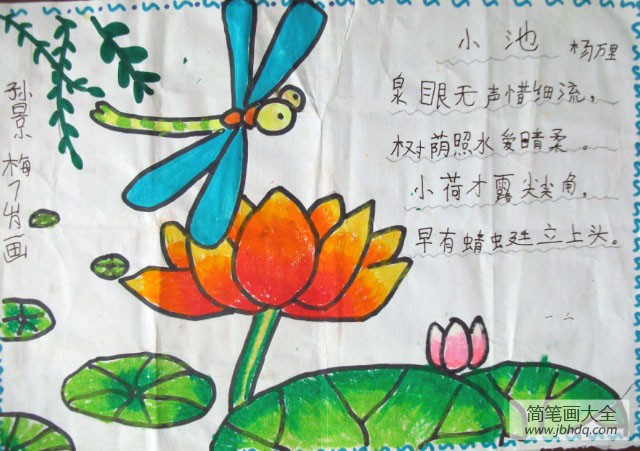 小池 杨万里
泉眼无声惜细流，
树荫照水爱晴柔。
小荷才露尖尖角，
早有蜻蜓立上头。
孙景梅7岁画
简笔画大全
www.jbhdq.com